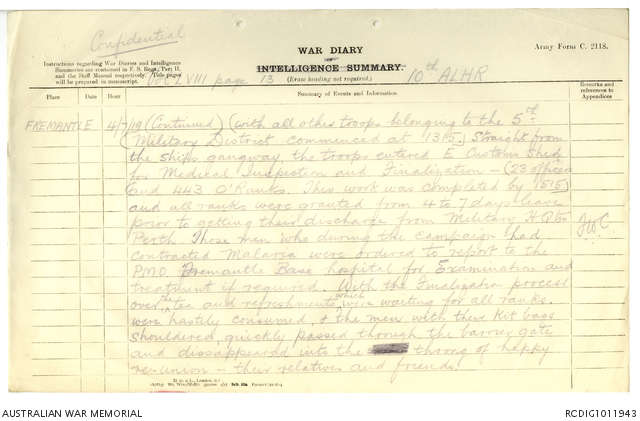 Confidential
WAR DIARY
or
INTELLIGENCE SUMMARY.
(Erase heading not required.)
Army Form C. 2118.
Instructions regarding War Diaries and Intelligence
Summaries are contained in F. S. Regs., Part II.
and the Staff Manual respectively. Title pages
will be prepared in manuscript.
Vol LVIII page 13
10th ALHR
Place
Date
Hour
Summary of Events and Information
Remarks and
references to
Appendices
FREMANTLE 4/7/19 (Continued) (with all other troops belonging to the 5th
Military District commenced at 1315. Straight from
the ships gangway, the troops entered E Customs Shed
for Medical Inspection and Finalization – (23 officers
and 443 O'Ranks. This work was completed by 1515,
and all ranks were granted from 4 to 7 days leave
prior to getting their discharge from Military H.Q.
Perth. Those men who during the campaign had
contracted Malaria were ordered to report to the
PMO Fremantle Base hospital for Examination and
treatment if required. With the Finalization process
over, tea and refreshments, which were waiting for all ranks.
were hastily consumed, & the men with their Kit bags
shouldered, quickly passed through the barrier gate
and dissappeared into the throng of happy
re-union – their relatives and friends.
AUSTRALIAN WAR MEMORIAL
RCDIG1011943